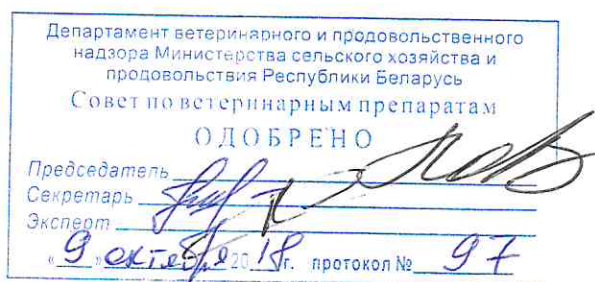 Департамент ветеринарного и продовольственного
надзора Министерства сельского хозяйства и
продовольствия Республики Беларусь
Совет по ветеринарным препаратам
ОДОБРЕНО
Председатель
Секретарь
Эксперт
«9» октября 2018г. протокол № 97